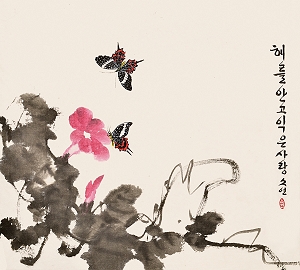 해를안고익은사랑 소연